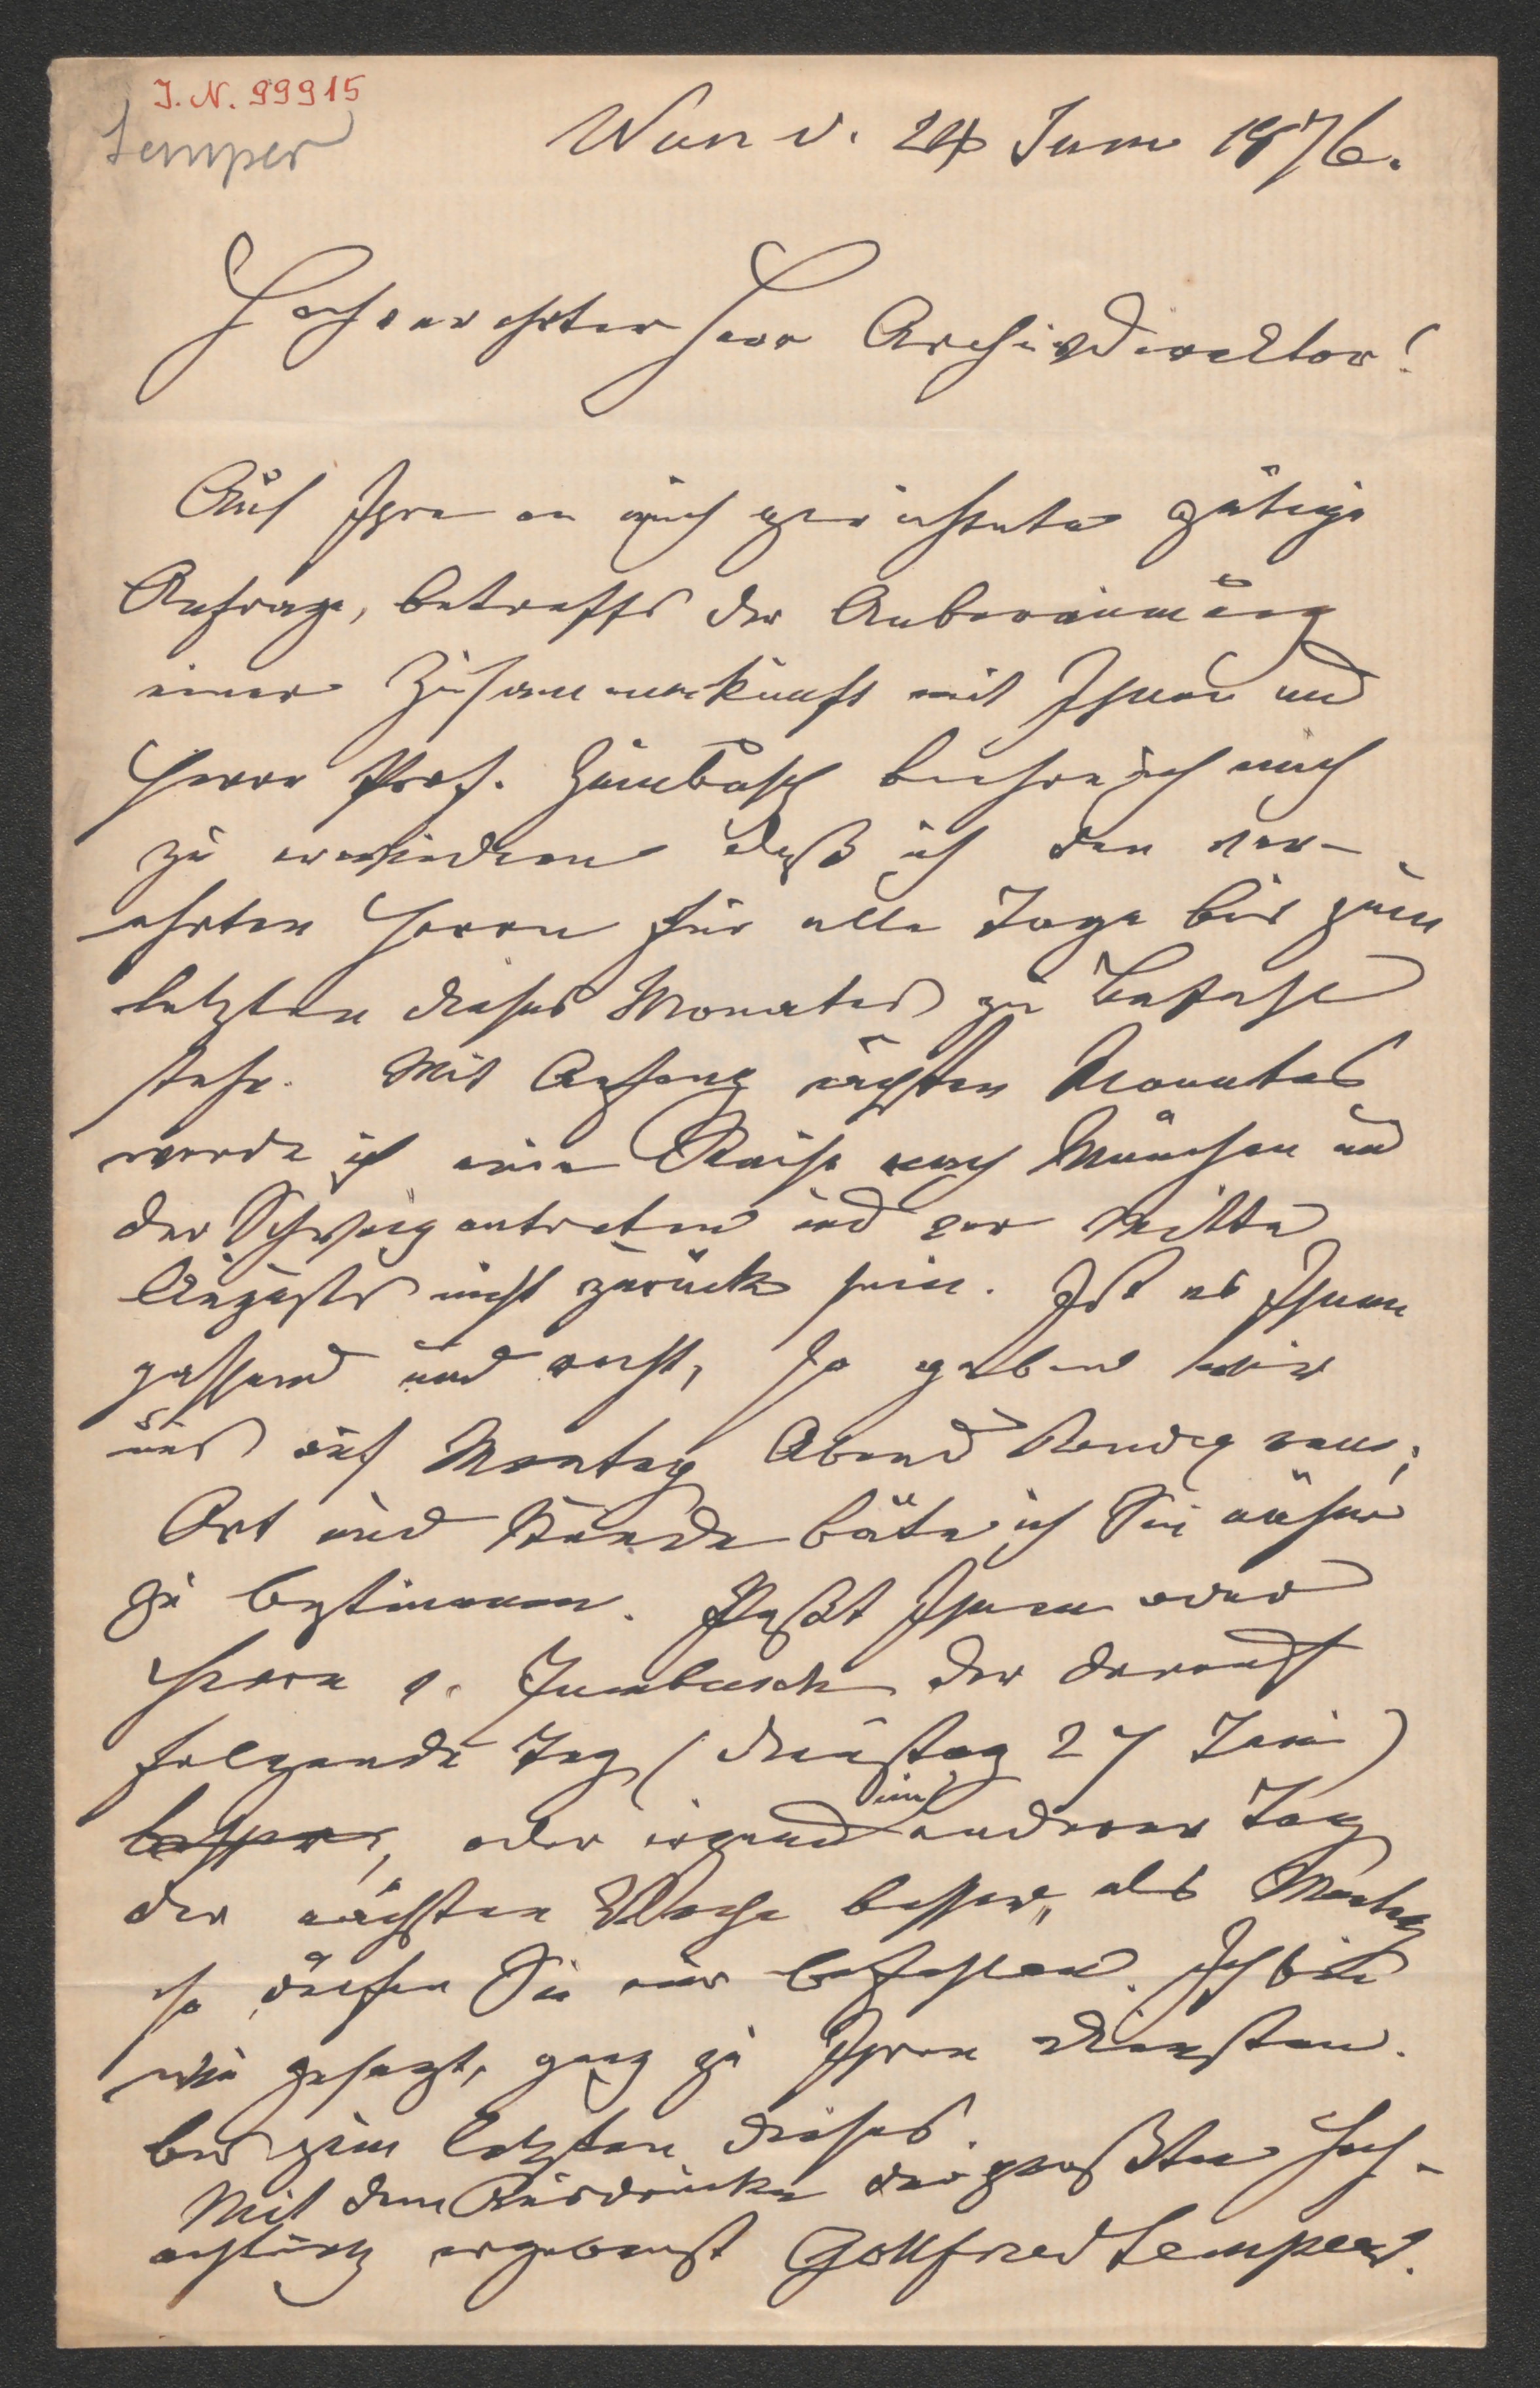 I. N. 99915
Semper
Wien d. 24 Juni 1876.
Hochverehrter Herr Archivdirektor!
Auf Ihre an mich gerichtete gütige
Anfrage, betreffs der Anberaumung
einer Zusammenkunft mit Ihnen und
Herrn Prof. Zumbusch beehre ich mich
zu erwiedern daß ich den ver-
ehrten Herrn für alle Tage bis zum
letzten dieses Monates zu Befehl
stehe. Mit Anfang nächsten Monates
werde ich eine Reise nach München und
der Schweiz antreten und vor Mitte
Augusts nicht zurück sein. Ist es Ihnen
passend und recht, so geben wir
uns auf Montag Abend Rendez vous;
Ort und Stunde bäte ich Sie näher
zu bestimmen. Paßt Ihnen oder
Herrn v. Zumbusch der darauf
folgende Tag (Dienstag 27 Juni)
besser, oder irgend ein anderer Tag
der nächsten Woche besser, als Montag
so dürfen Sie nur befehlen. Ich bin
wie gesagt, ganz zu Ihren Diensten.
bis zum letzten dieses.
Mit dem Ausdrucke der größten Hoch-
achtung ergebenst Gottfried Semper.